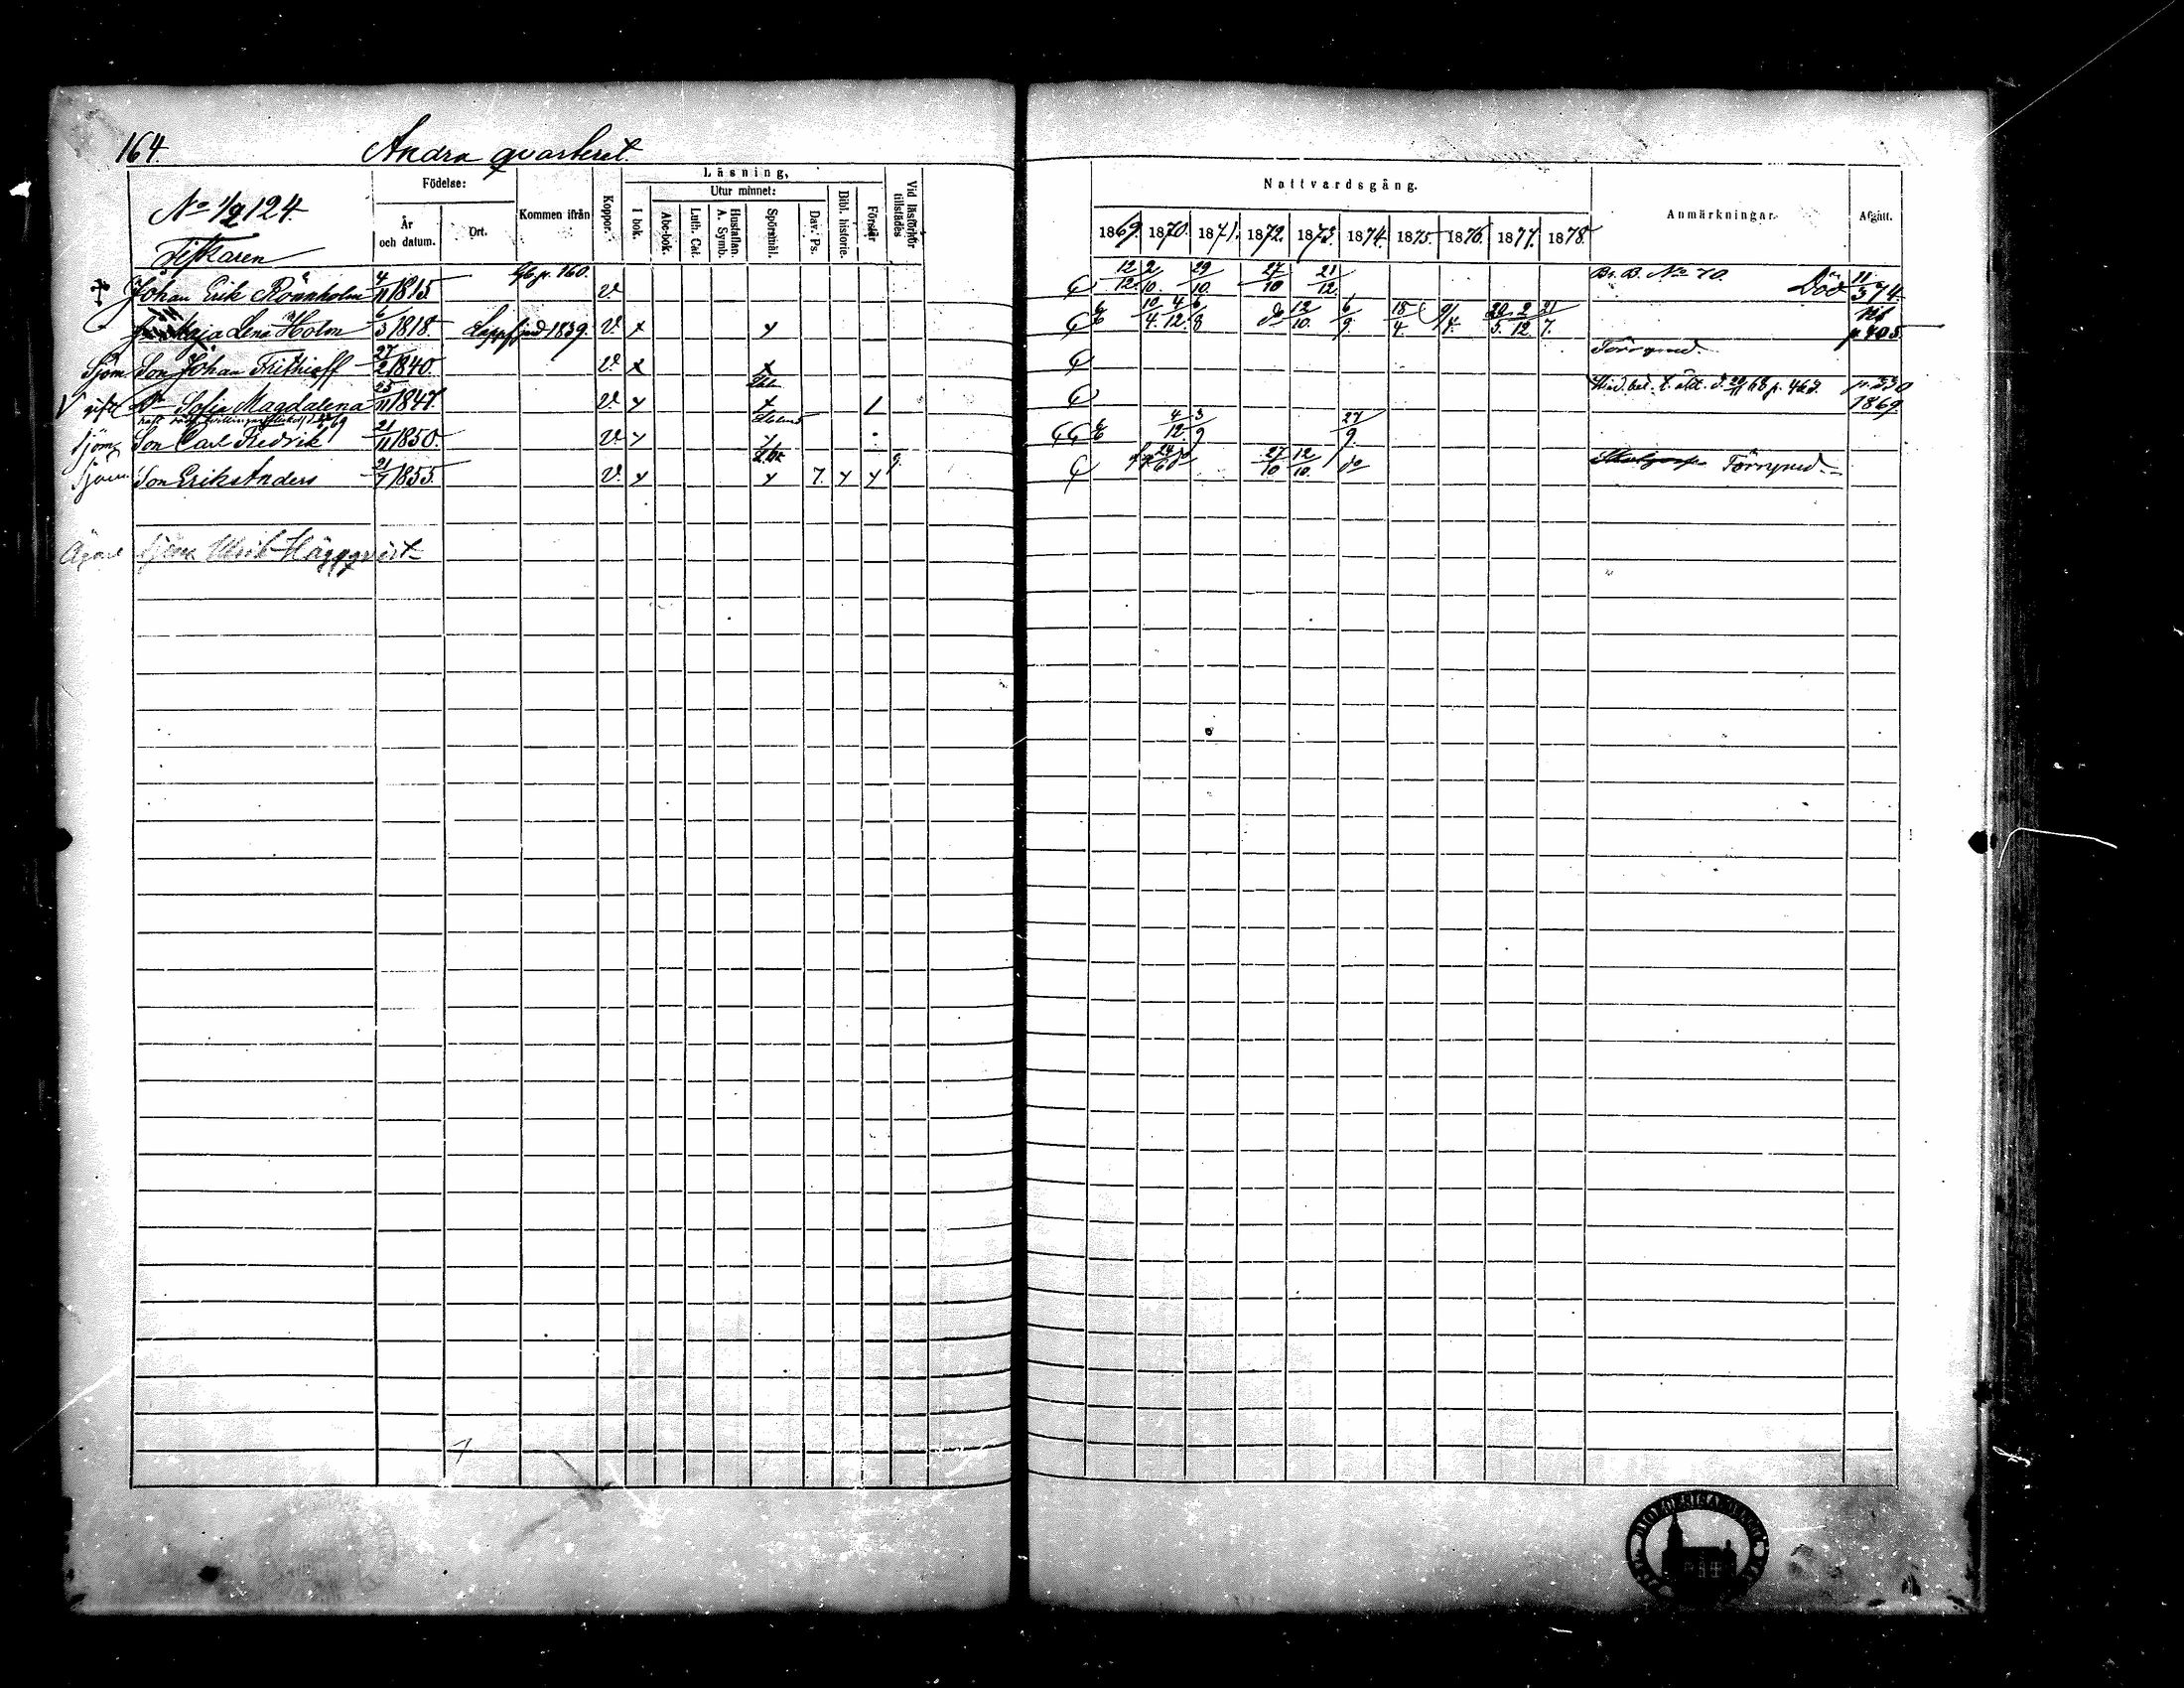 164.
Andra qvarteret.
No 1/2 124
Födelse:
År och datum.
Ort.
Kommen ifrån
Koppor.
Läsning,
I bok.
Utur minnet:
Abc-bok.
Luth. Cat.
Hustaflan. A. Symb.
Spörsmål.
Dav. Ps.
Bibl. historie.
Förstår
Vid läsförhör tillstädes
Nattvardsgång.
1869. 1870. 1871. 1872. 1873. 1874. 1875. 1876. 1877. 1878.
Anmärkningar.
Afgått.
Fiskaren
Johan Erik Rönnholm 4/11 1815 p. 160. v. 12/12 2/10. 29/10. 27/10 21/12. Br. B. No 70. Död 11/3 74.
Maja Lena Holm 6/3 1818. Lappfjerd 1839. v. x y 10/4. 4/12. 6/8 do 12/10. 6/9. 18/4. 9/4. 20/5. 2/12. 21/7. p 405
Sjöm. Son Johan Frithioff 27/2 1840. v. x x Försymd.
V gift Dr Sofia Magdalena 25/11 1847. v. y x / 68 p. 467. p. 330 1869
Sjöm. Son Carl Fredrik 21/11 1850. v. y y 4/12. 3/9 27/9.
Sjöm. Son Erik Anders 21/7 1855. v. y y 7. y y 24/6 27/10 12/10. do Försymd.
Ägare Sjöm. Ulrik Häggqvist